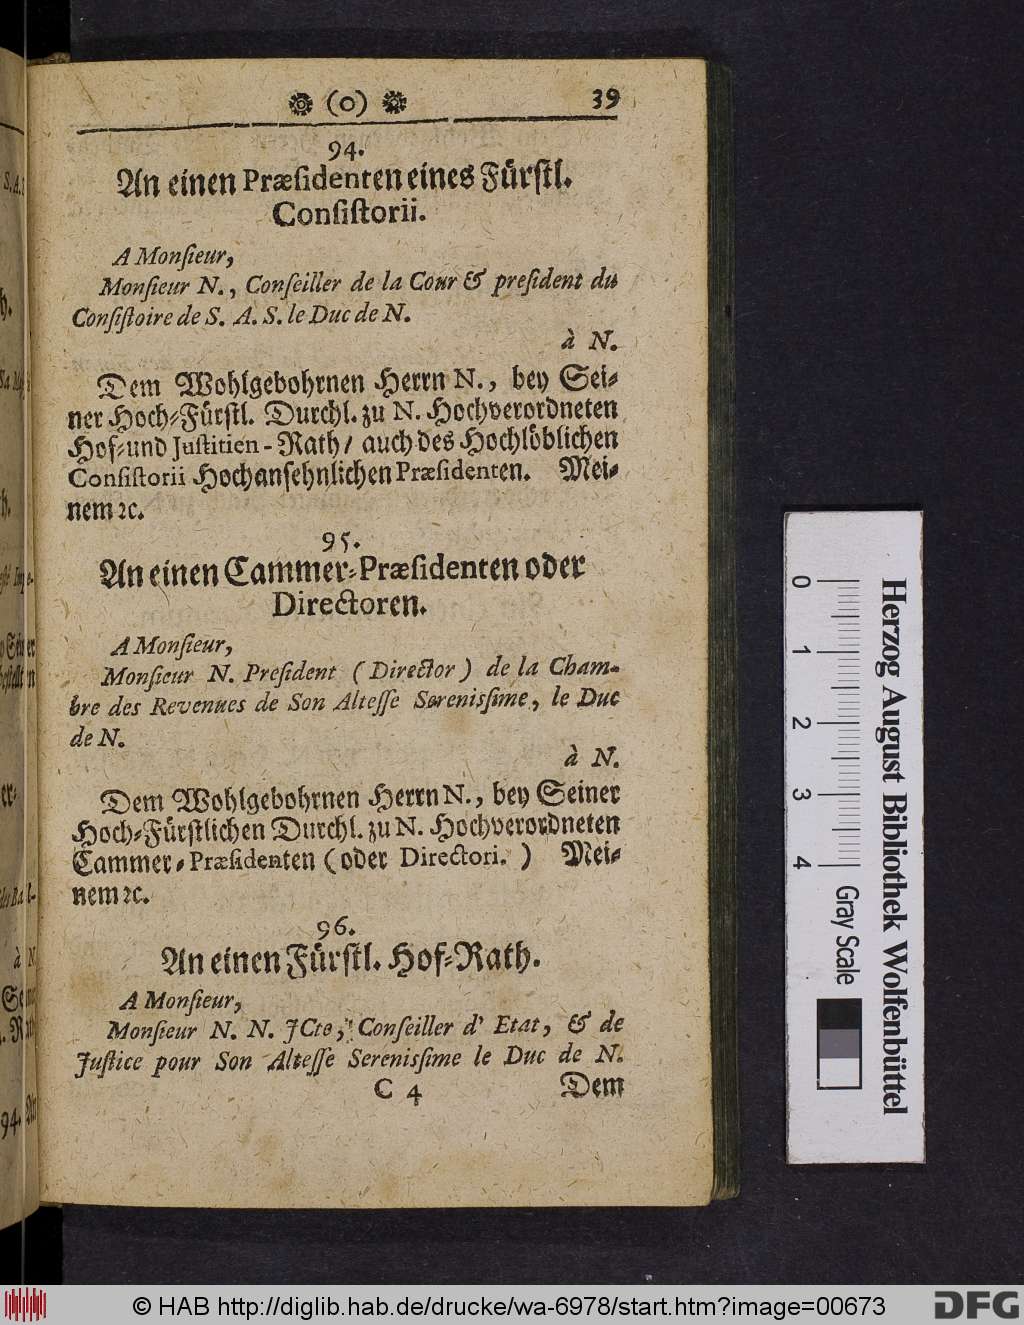 ❁ (o) ❁ 39
94.
An einen Præſidenten eines Fürſtl.
Conſiſtorii.
A Monſieur,
Monſieur N., Conſeiller de la Cour & preſident du
Conſiſtoire de S. A. S. le Duc de N.
à N.
Dem Wohlgebohrnen Herrn N., bey Sei⸗
ner Hoch⸗Fürſtl. Durchl. zu N. Hochverordneten
Hof⸗und Juſtitien-Rath/ auch des Hochlöblichen
Conſiſtorii Hochanſehnlichen Præſidenten. Mei⸗
nem ꝛc.
95.
An einen Cammer⸗Præſidenten oder
Directoren.
A Monſieur,
Monſieur N. Preſident (Director) de la Cham-
bre des Revenues de Son Alteſſe Serenisſime, le Duc
de N.
à N.
Dem Wohlgebohrnen Herrn N., bey Seiner
Hoch⸗Fürſtlichen Durchl. zu N. Hochverordneten
Cammer⸗Præſidenten (oder Directori.) Mei⸗
nem ꝛc.
96.
An einen Fürſtl. Hof⸗Rath.
A Monſieur,
Monſieur N. N. JCte, Conſeiller d' Etat, & de
Juſtice pour Son Alteſſe Serenisſime le Duc de N.
C 4 Dem
0 1 2 3 4
Gray Scale
Herzog August Bibliothek Wolfenbüttel
© HAB http://diglib.hab.de/drucke/wa-6978/start.htm?image=00673
DFG